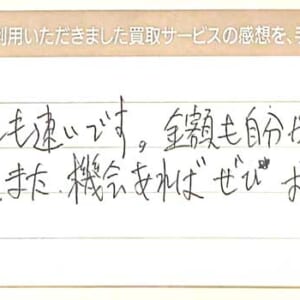 利用いただきました買取サービスの感想を、
も速いです。金額も自分
また、機会あれば ぜひ お